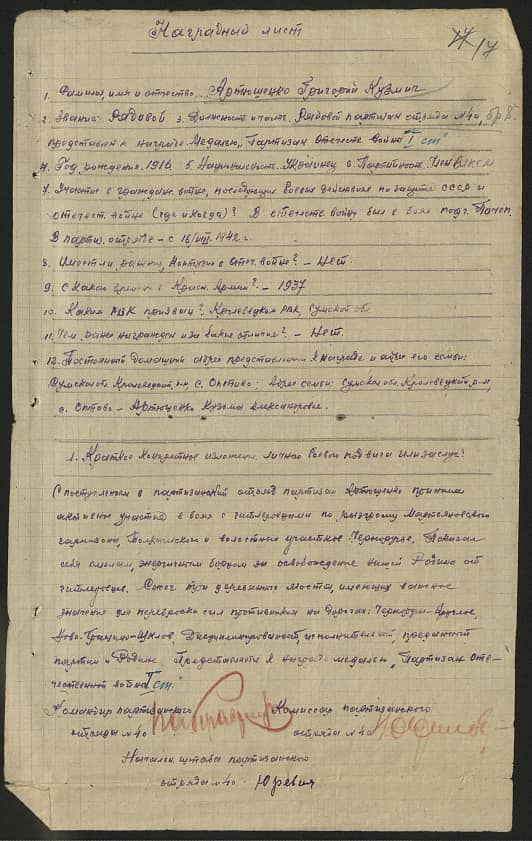 Наградный лист
17
1. Фамилия, имя и отчество Артюшенко Григорий Кузмич
2. Звание Рядовой 3. Должность и часть. Рядовой партизан отряда №40,
представлен к награде Медалью, Партизан Отечеств. война "I ст"
4. Год рождения 1916 5. Национальность. Украинец 6. Партийность. Член ВЛКСМ
7. Участие в гражданск. войне, последующих боевых действиях по защите СССР и
отечест. войне (где и когда)? В отечеств. войну был в боях под г. Почеп.
В партиз. отряде – с 16/VIII. 1942 г.
8. Имеет ли ранения, контузии в Отеч. войне? – Нет.
9. С какого времени в Красн. Армии? – 1937
10. Каким РВК призван? Кролевецким РВК, Сумской обл.
11. Чем ранее награжден и за какие отличия? – Нет.
12. Постоянный домашний адрес представляемого к награде и адрес его семьи:
Сумская обл. Кролевецкий р-н с. ; Адрес семьи: Сумская обл. Кролевецкий р-н,
с. – Артюшенко Кузьма Александрович.
1. Краткое конкретное изложение личного боевого подвига или заслуг:
С поступлением в партизанский отряд партизан Артюшенко принимал
активное участие в боях с гитлеровцами по разгрому
гарнизона, и волостных участков Чернорудье. Показал
себя смелым, энергичным борцом за освобождение нашей Родины от
гитлеровцев. Сжег три деревянных моста, имеющих важное
значение для переброски сил противником на дорогах: Чернорудье–Круглое,
Ново-–Шклов. Дисциплинированность, исполнительный, преданный
партии и Родине. Представляется к награде медалью „Партизан Оте-
чественной войны "I ст"
Командир партизанского Комиссар партизанского
отряда №40 отряда №40
Началн. штаба партизанского
отряда №40 Юревич